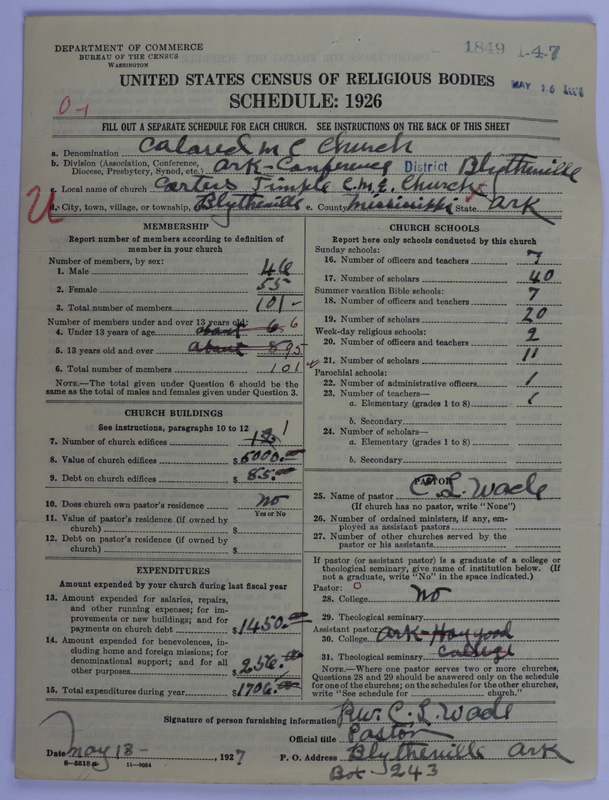 DEPARTMENT OF COMMERCE
BUREAU OF THE CENSUS
WASHINGTON
1849 1-4-7
UNITED STATES CENSUS OF RELIGIOUS BODIES
MAY 26
SCHEDULE: 1926
0-1
FILL OUT A SEPARATE SCHEDULE FOR EACH CHURCH. SEE INSTRUCTIONS ON THE BACK OF THIS SHEET
a. Denomination Colored M E Church
b. Division (Association, Conference, Diocese, Presbytery, Synod, etc.) Ark-Conference District Blytheville
c. Local name of church Carter Timple C.M.E. Church
d. City, town, village, or township, Blytheville e. County Mississippi State Ark
MEMBERSHIP
Report number of members according to definition of member in your church
Number of members, by sex:
1. Male 46
2. Female 55
3. Total number of members 101
Number of members under and over 13 years old:
4. Under 13 years of age about 6 6
5. 13 years old and over about 95
6. Total number of members 101
NOTE.—The total given under Question 6 should be the same as the total of males and females given under Question 3.
CHURCH BUILDINGS
See instructions, paragraphs 10 to 12
7. Number of church edifices 1
8. Value of church edifices $ 5000.00
9. Debt on church edifices $ 85.00
10. Does church own pastor's residence No
Yes or No
11. Value of pastor's residence (if owned by church) $
12. Debt on pastor's residence (if owned by church) $
EXPENDITURES
Amount expended by your church during last fiscal year
13. Amount expended for salaries, repairs, and other running expenses; for improvements or new buildings; and for payments on church debt $ 1450.00
14. Amount expended for benevolences, including home and foreign missions; for denominational support; and for all other purposes $ 256.00
15. Total expenditures during year $ 1706.00
CHURCH SCHOOLS
Report here only schools conducted by this church
Sunday schools:
16. Number of officers and teachers 7
17. Number of scholars 40
Summer vacation Bible schools:
18. Number of officers and teachers 7
19. Number of scholars 20
Week-day religious schools:
20. Number of officers and teachers 2
21. Number of scholars 11
Parochial schools:
22. Number of administrative officers 1
23. Number of teachers—
a. Elementary (grades 1 to 8) 1
b. Secondary
24. Number of scholars—
a. Elementary (grades 1 to 8)
b. Secondary
PASTOR
25. Name of pastor C. L. Wade
(If church has no pastor, write "None")
26. Number of ordained ministers, if any, employed as assistant pastors
27. Number of other churches served by the pastor or his assistants
If pastor (or assistant pastor) is a graduate of a college or theological seminary, give name of institution below. (If not a graduate, write "No" in the space indicated.)
Pastor: 0
28. College No
29. Theological seminary
Assistant pastor:
30. College Ark-Haygood
31. Theological seminary College
NOTE.—Where one pastor serves two or more churches, Questions 28 and 29 should be answered only on the schedule for one of the churches; on the schedules for the other churches, write "See schedule for church."
Signature of person furnishing information Rev. C. L. Wade
Official title Pastor
Date May 18- , 1927 P. O. Address Blytheville Ark
8-5518 a 11-9004 Box 243